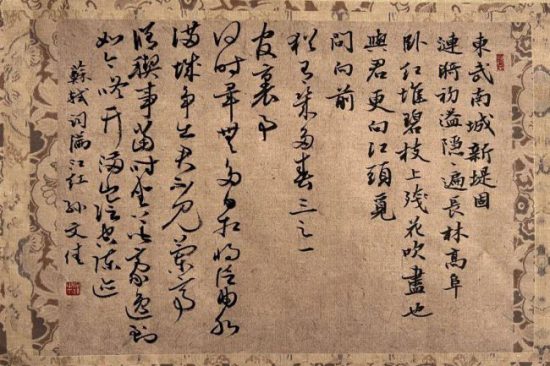 東武南城新堤固
漣漪初溢隐遍長林高阜
卧红堆碧枝上残花吹盡也
與君更向江頭覓
問向前
猶有幾多春三之一
官裏事
何時畢無多日相將泛曲水
滿城争出君不見蘭亭
修禊事當時坐上皆豪逸到
如今修竹滿山陰空陳迹
蘇軾词满江红 孙文佳